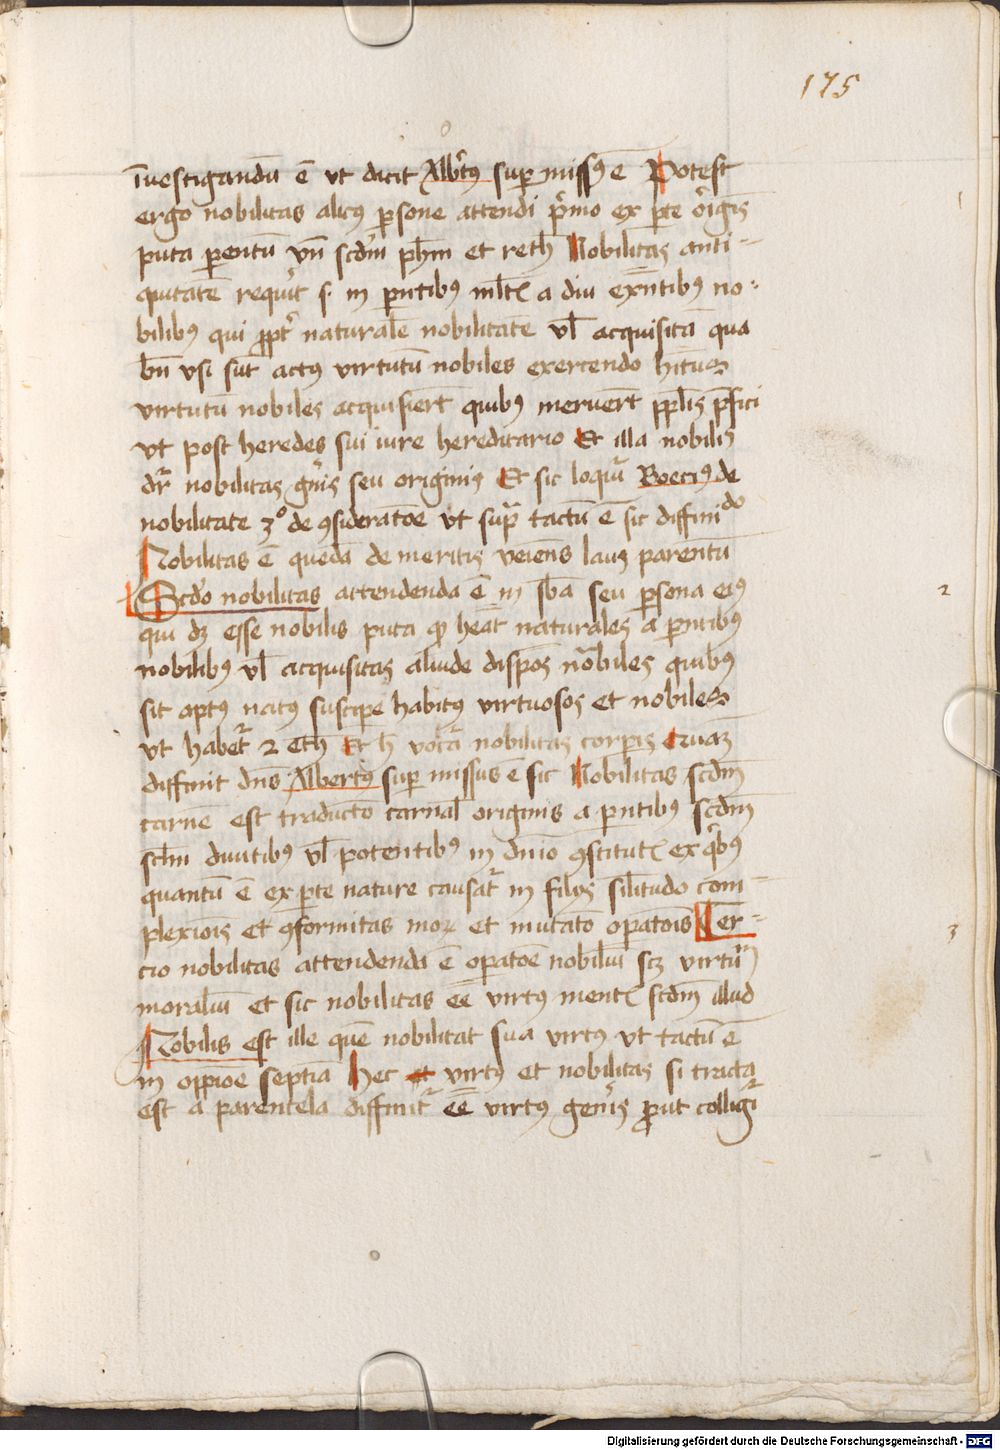 175
īuestigandū ē vt dicit Alb͛tꝰ suꝑ missꝰ e Potest
ergo nobilitas alicꝰ ꝑsone attendi pͥmo ex ꝑte orͥgīs
puta ꝑentū vn̄ scd̄m ph̄m et reth̄ Nobilitas anti-
quitatē requirͥt s. in ꝑntibꝰ a diu exn̄tibꝰ no-
bilibꝰ qui ꝓpt͛ naturalē nobilitatē vl̄ acquisitā qua
bn̄ vsi sūt actꝰ virtutū nobiles exercendo hītuꝫ
virtutū nobiles acquisiert̄ quibꝰ meruert̄ ppl̄is p̄fici
vt post heredes sui iure hereditario Et illa nobilis
dr̄ nobilitas gn̄is seu originis Et sic loquiͭ Boeciꝰ de
nobilitate 3º de ꝯsideratōe vt supͣ tactū ē sic diffinido
Nobilitas ē quedā de meritis veiēns laus parentū
Scd̄o nobilitas attendenda ē in sb̄a seu ꝑsona eiꝰ
qui dꝫ esse nobilis puta ꝙ heāt naturales a ꝑntibꝰ
nobilibꝰ vl̄ acquisitas aliūde dispōes nobiles quibꝰ
sit aptꝰ natꝰ suscipe habitꝰ virtuosos et nobiles
vt habet͛ 2 eth̄ Et h̄ vocat͛ nobilitas corꝑis Quaꝫ
diffinit dn̄s Albertꝰ suꝑ missus ē sic Nobilitas scd̄m
carnē est traductō carnal̄ originis a ꝑntibꝰ scd̄m
sclm̄ diuitibꝰ vl̄ potentibꝰ in dn̄io ꝯstitutis ex qͥbꝰ
quantū ē ex ꝑte nature causat͛ in filijs sil̄itudo com-
plexiōis et ꝯformitas moꝝ et mutatō oꝑatōis Ter-
cio nobilitas attendenda ē oꝑatōe nobiliū scꝫ virtūm
moraliū et sic nobilitas eē virtꝰ mentis scd̄m illud
Nobilis est ille quē nobilitat sua virtꝰ vt tactū ē
in oppiōe septīa Hec virtꝰ et nobilitas si tracta
est a parentela diffinit͛ eē virtꝰ gen͛is ꝓut colligit͛
1
2
3
Digitalisierung gefördert durch die Deutsche Forschungsgemeinschaft - DFG